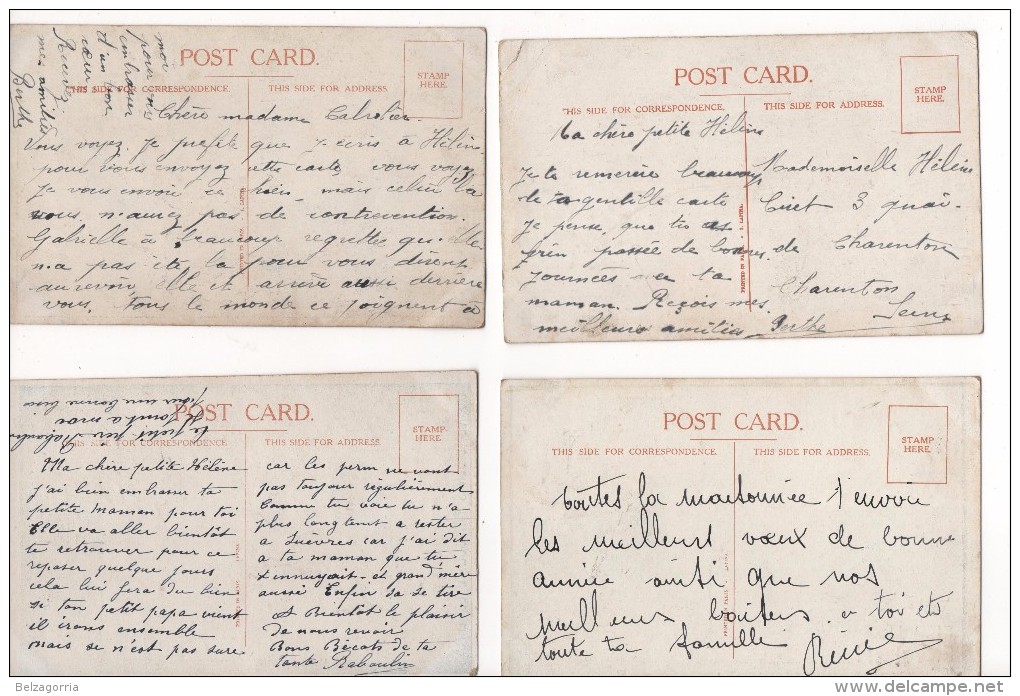 POST CARD.
THIS SIDE FOR CORRESPONDENCE.
THIS SIDE FOR ADDRESS.
STAMP
HERE.
Chère madame
Vous voyez. Je profite que j'ecris à Hélène
pour vous envoyez cette carte vous voyez
Je vous envoie ce bien, mais celui la
vous, n'aurez pas de contrevention.
Gabrielle à beaucoup regrettez qu'elle
n'a pas ete la pour vous dire
au revoir, elle et arrivée aussi derrière
vous. Tous le monde ce joignent a
moi
pour vous
embrasser
d'un bon
cœur
Recevez
mes amitiés
Berthe
PRINTED IN PARIS
POST CARD.
THIS SIDE FOR CORRESPONDENCE.
THIS SIDE FOR ADDRESS.
STAMP
HERE.
Ma chère petite Hélène
Je te remercie beaucoup
de ta gentille carte
Je pense, que tu as
passée de bonnes
journées avec ta
maman. Reçois mes
meilleurs amitiés Berthe
Mademoiselle Hélène
3 quai
de Charenton
Charenton
Seine
PRINTED IN PARIS
POST CARD.
THIS SIDE FOR CORRESPONDENCE.
THIS SIDE FOR ADDRESS.
STAMP
HERE.
Ma chère petite Hélène
j'ai bien embrasser ta
petite Maman pour toi
Elle va aller bientôt
te retrouver pour ce
reposer quelque jours
cela lui fera du bien
si ton petit papa vient
il irons ensemble
mais se n'est pas sure
car les perm ne vont
pas toujour régulièrement
Comme tu voie tu n'a
plus longtemt a rester
a Suèvres car j'ai dit
a ta maman que tu
t ennuyait et grand'mère
aussi Enfin sa se tire
A Bientôt le plaisir
de nous revoir
Bons Bécots de ta
tante Rabaulin
PRINTED IN PARIS
POST CARD.
THIS SIDE FOR CORRESPONDENCE.
THIS SIDE FOR ADDRESS.
STAMP
HERE.
toutes la maisonnée t'envoie
les meilleurs vœux de bonne
année ainsi que nos
meilleurs baisers a toi et
toute ta famille
Renée
Belzagorria
delcampe.net